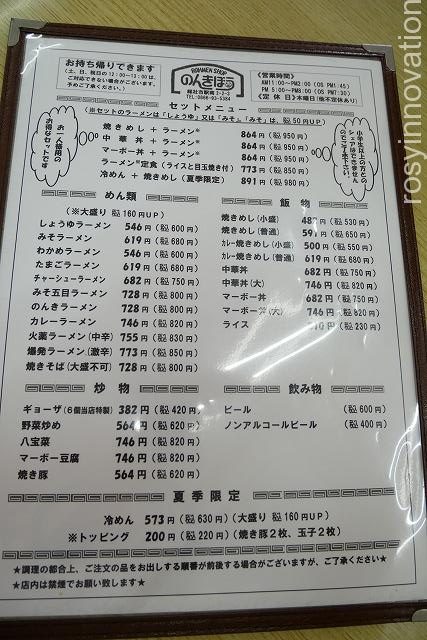 お持ち帰りできます
(土、日、祝日の12:00〜13:00は、
ご対応できない場合がございます、
予めご了承ください。)
ROHMEN SHOP
のんきぼう
総社市駅南2-2-3
TEL:0866-93-5384
《営業時間》
AM11:00〜PM2:00 (OS PM1:45)
PM 5:00〜PM8:00 (OS PM7:30)
《定 休 日》木曜日(他不定休あり)
セットメニュー
(※セットのラーメンは「しょうゆ」又は「みそ」。「みそ」は、税50円UP)
お一人様用の
お得なセットです
焼きめし + ラーメン※ 864円(税950円)
中 華 丼 + ラーメン※ 864円(税950円)
マーボー丼 + ラーメン※ 864円(税950円)
ラーメン※定食(ライスと目玉焼き付) 773円(税850円)
冷めん + 焼きめし(夏季限定) 891円(税980円)
小学生以上の方との
シェアはできません
のでご了承下さい。
めん類
(※大盛り 税160円UP)
しょうゆラーメン 546円(税600円)
みそラーメン 619円(税680円)
わかめラーメン 546円(税600円)
たまごラーメン 619円(税680円)
チャーシューラーメン 682円(税750円)
みそ五目ラーメン 728円(税800円)
のんきラーメン 728円(税800円)
カレーラーメン 746円(税820円)
火薬ラーメン(中辛) 755円(税830円)
爆発ラーメン(激辛) 773円(税850円)
焼きそば(大盛不可) 728円(税800円)
飯 物
焼きめし(小盛) 482円(税530円)
焼きめし(普通) 591円(税650円)
カレー焼きめし(小盛) 500円(税550円)
カレー焼きめし(普通) 619円(税680円)
中華丼 682円(税750円)
中華丼(大) 746円(税820円)
マーボー丼 682円(税750円)
マーボー丼(大) 746円(税820円)
ライス 210円(税230円)
炒 物
ギョーザ(6個当店特製) 382円(税420円)
野菜炒め 564円(税620円)
八宝菜 746円(税820円)
マーボー豆腐 746円(税820円)
焼き豚 564円(税620円)
飲み物
ビール (税600円)
ノンアルコールビール (税400円)
夏季限定
冷めん 573円(税630円)(大盛り 税160円UP)
※トッピング 200円(税220円)(焼き豚2枚、玉子2枚)
★調理の都合上、ご注文の品をお出しする順番が前後する場合がございますが、ご了承ください★
★店内は禁煙でお願い致します★
rosyinnovation